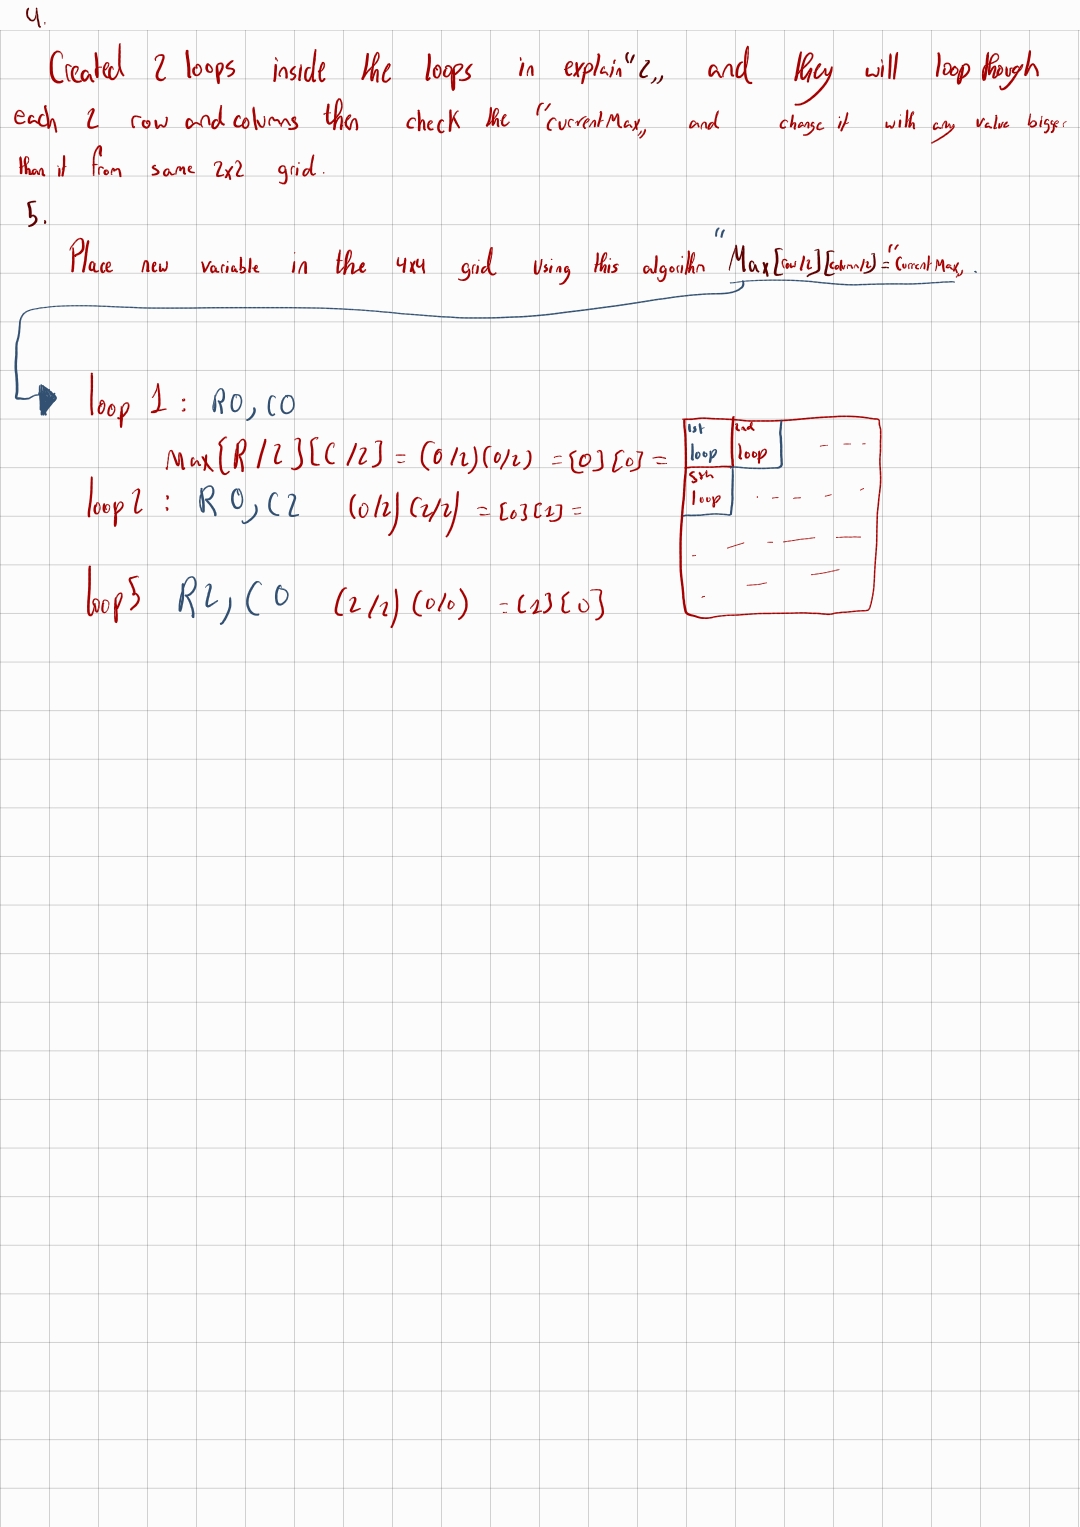 4.
Created 2 loops inside the loops in explain "2,, and they will loop though
each 2 row and columns then check the "currentMax,, and change it with any value bigger
than it from same 2x2 grid.
5.
Place new variable in the 4x4 grid using this algorithm "Max[row/2][column/2] = "CurrentMax,,.
loop 1 : R0, C0
Max[R/2][C/2] = (0/2)(0/2) = [0][0] =
loop 2 : R0, C2 (0/2)(2/2) = [0][1] =
loop 5 R2, C0 (2/2)(0/0) = [1][0]
1st 2nd
loop loop
5th
loop